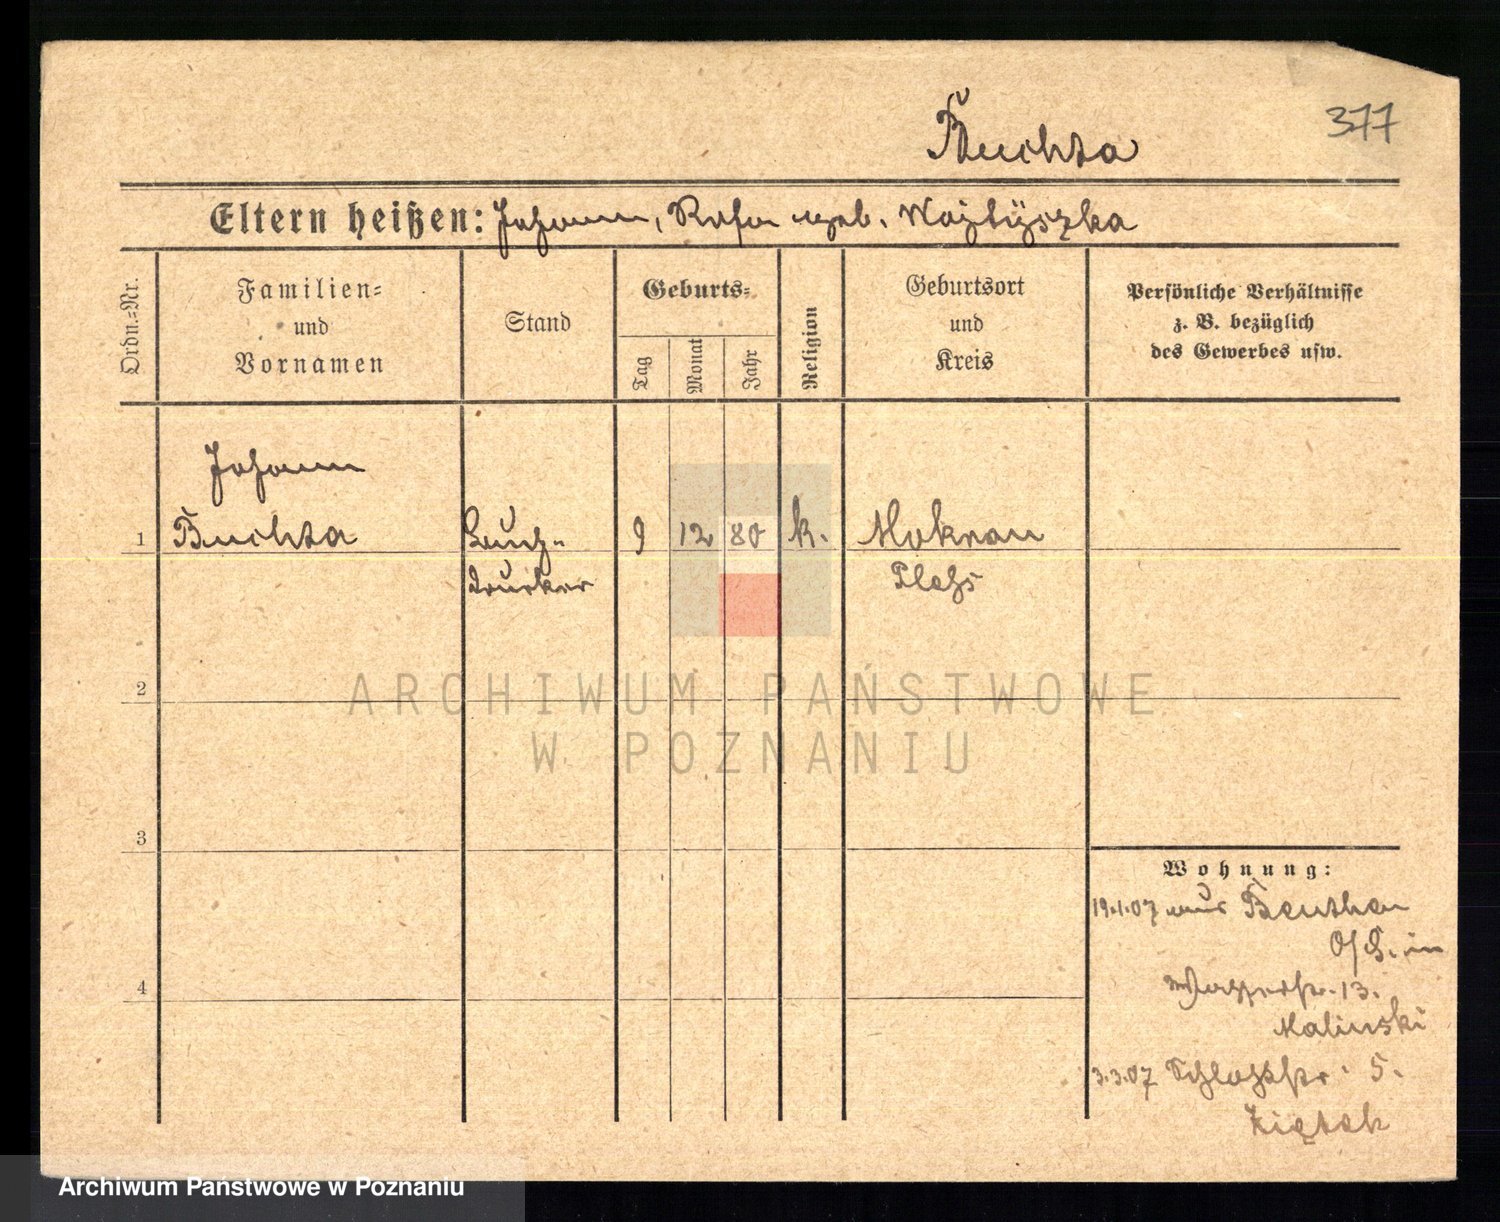 377
Buchta
Eltern heißen: Johann, Rosa geb. Wojtyszka
Ordn.-Nr.
Familien-
und
Vornamen
Stand
Geburts-
Tag
Monat
Jahr
Religion
Geburtsort
und
Kreis
Persönliche Verhältnisse
z. B. bezüglich
des Gewerbes usw.
Johann
1 Buchta Buch- 9 12 80 k. Mokrau
drucker Pleß
2
ARCHIWUM PAŃSTWOWE
W POZNANIU
3
4
Wohnung:
19.1.07 aus Beuthen
O/S. in
Wasserstr. 13.
Malinski
3.3.07 Schloßstr. 5.
Ziętek
Archiwum Państwowe w Poznaniu